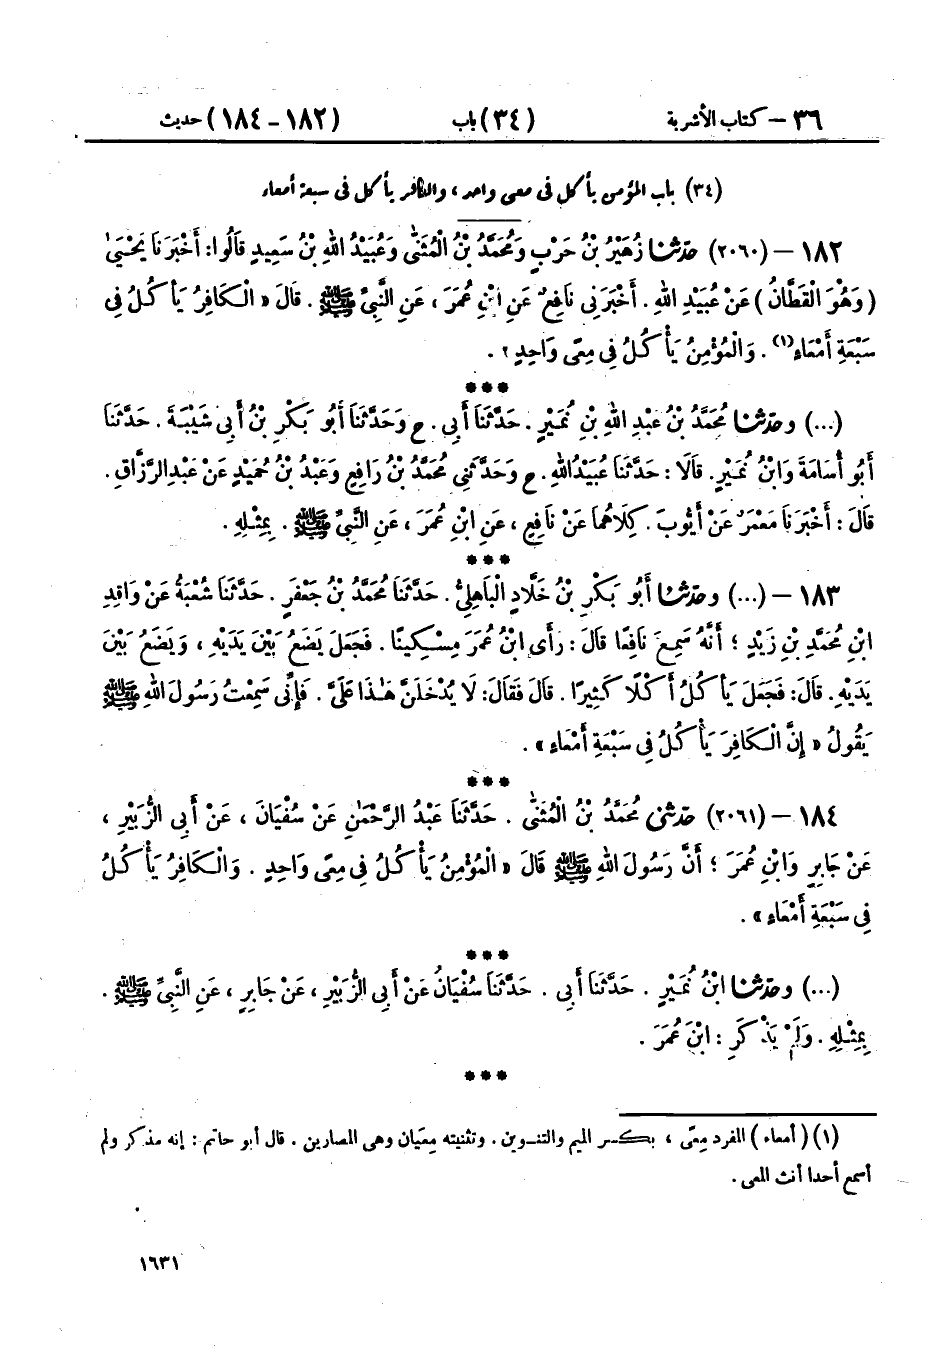 ٣٦ – كتاب الأشربة (٣٤) باب (١٨٢ – ١٨٤) حديث
(٣٤) باب المؤمن يأكل فى معى واحد ، والكافر يأكل فى سبعة أمعاء
١٨٢ – (٢٠٦٠) حَدَّثَنَا زُهَيْرُ بْنُ حَرْبٍ وَمُحَمَّدُ بْنُ الْمُثَنَّىٰ وَعُبَيْدُ اللهِ بْنُ سَعِيدٍ قَالُوا: أَخْبَرَنَا يَحْيَىٰ
(وَهُوَ الْقَطَّانُ) عَنْ عُبَيْدِ اللهِ . أَخْبَرَنِى نَافِعٌ عَنِ ابْنِ عُمَرَ ، عَنِ النَّبِىِّ ﷺ . قَالَ « الْكَافِرُ يَأْكُلُ فِى
سَبْعَةِ أَمْعَاءٍ(١) . وَالْمُؤْمِنُ يَأْكُلُ فِى مِعًى وَاحِدٍ » .
***
(...) وحَدَّثَنَا مُحَمَّدُ بْنُ عَبْدِ اللهِ بْنِ نُمَيْرٍ . حَدَّثَنَا أَبِى . ح وَحَدَّثَنَا أَبُو بَكْرِ بْنُ أَبِى شَيْبَةَ . حَدَّثَنَا
أَبُو أُسَامَةَ وَابْنُ نُمَيْرٍ. قَالَا : حَدَّثَنَا عُبَيْدُ اللهِ . ح وَحَدَّثَنِى مُحَمَّدُ بْنُ رَافِعٍ وَعَبْدُ بْنُ حُمَيْدٍ عَنْ عَبْدِ الرَّزَّاقِ .
قَالَ : أَخْبَرَنَا مَعْمَرٌ عَنْ أَيُّوبَ . كِلَاهُمَا عَنْ نَافِعٍ ، عَنِ ابْنِ عُمَرَ ، عَنِ النَّبِىِّ ﷺ . بِمِثْلِهِ .
***
١٨٣ – (...) وحَدَّثَنَا أَبُو بَكْرِ بْنُ خَلَّادٍ الْبَاهِلِىُّ . حَدَّثَنَا مُحَمَّدُ بْنُ جَعْفَرٍ . حَدَّثَنَا شُعْبَةُ عَنْ وَاقِدِ
ابْنِ مُحَمَّدِ بْنِ زَيْدٍ ؛ أَنَّهُ سَمِعَ نَافِعًا قَالَ : رَأَى ابْنُ عُمَرَ مِسْكِينًا . فَجَعَلَ يَضَعُ بَيْنَ يَدَيْهِ ، وَيَضَعُ بَيْنَ
يَدَيْهِ . قَالَ: فَجَعَلَ يَأْكُلُ أَكْلًا كَثِيرًا . قَالَ فَقَالَ: لَا يُدْخَلَنَّ هَٰذَا عَلَىَّ . فَإِنِّى سَمِعْتُ رَسُولَ اللهِ ﷺ
يَقُولُ « إِنَّ الْكَافِرَ يَأْكُلُ فِى سَبْعَةِ أَمْعَاءٍ » .
***
١٨٤ – (٢٠٦١) حَدَّثَنِى مُحَمَّدُ بْنُ الْمُثَنَّىٰ . حَدَّثَنَا عَبْدُ الرَّحْمَٰنِ عَنْ سُفْيَانَ ، عَنْ أَبِى الزُّبَيْرِ ،
عَنْ جَابِرٍ وَابْنِ عُمَرَ ؛ أَنَّ رَسُولَ اللهِ ﷺ قَالَ « الْمُؤْمِنُ يَأْكُلُ فِى مِعًى وَاحِدٍ . وَالْكَافِرُ يَأْكُلُ
فِى سَبْعَةِ أَمْعَاءٍ » .
***
(...) وحَدَّثَنَا ابْنُ نُمَيْرٍ . حَدَّثَنَا أَبِى . حَدَّثَنَا سُفْيَانُ عَنْ أَبِى الزُّبَيْرِ ، عَنْ جَابِرٍ ، عَنِ النَّبِىِّ ﷺ .
بِمِثْلِهِ . وَلَمْ يَذْكُرِ : ابْنَ عُمَرَ .
***
(١) (أمعاء) المفرد مِعًى ، بكسر الميم والتنوين . وتثنيته مِعَيان وهى المصارين . قال أبو حاتم : إنه مذكر ولم
أسمع أحدا أنث المعى .
١٦٣١